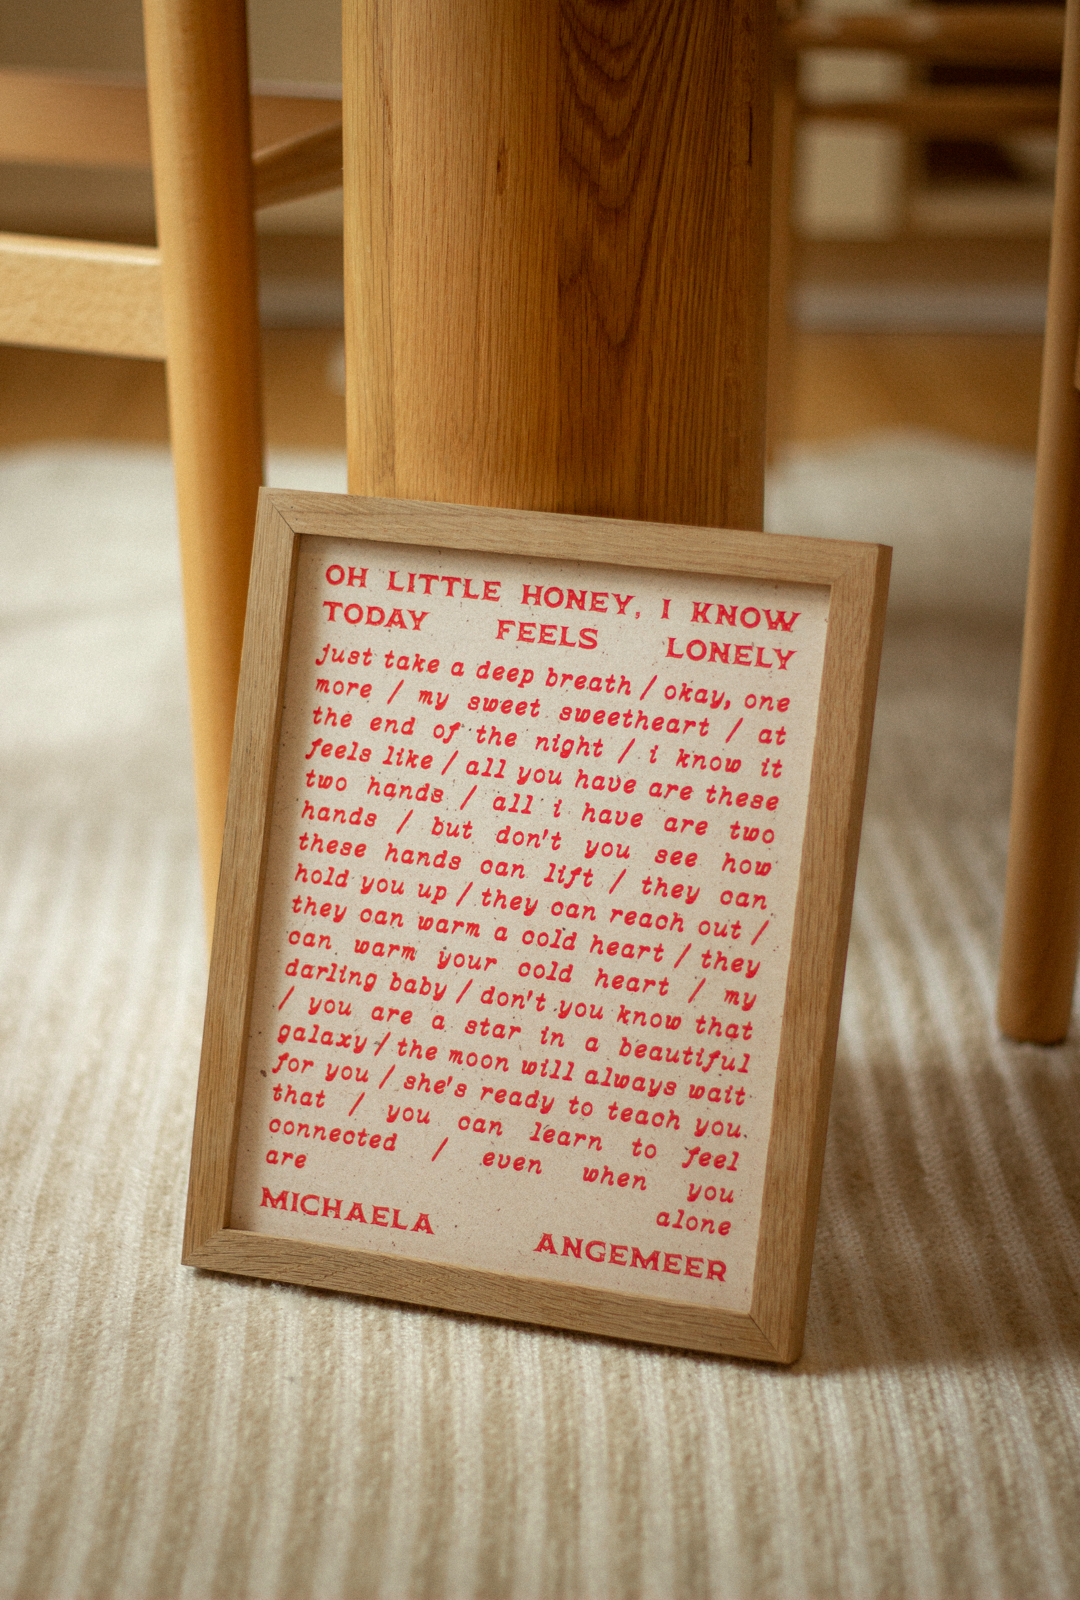 OH LITTLE HONEY, I KNOW
TODAY FEELS LONELY
just take a deep breath / okay, one
more / my sweet sweetheart / at
the end of the night / i know it
feels like / all you have are these
two hands / all i have are two
hands / but don't you see how
these hands can lift / they can
hold you up / they can reach out /
they can warm a cold heart / they
can warm your cold heart / my
darling baby / don't you know that
/ you are a star in a beautiful
galaxy / the moon will always wait
for you / she's ready to teach you
that / you can learn to feel
connected / even when you
are alone
MICHAELA ANGEMEER